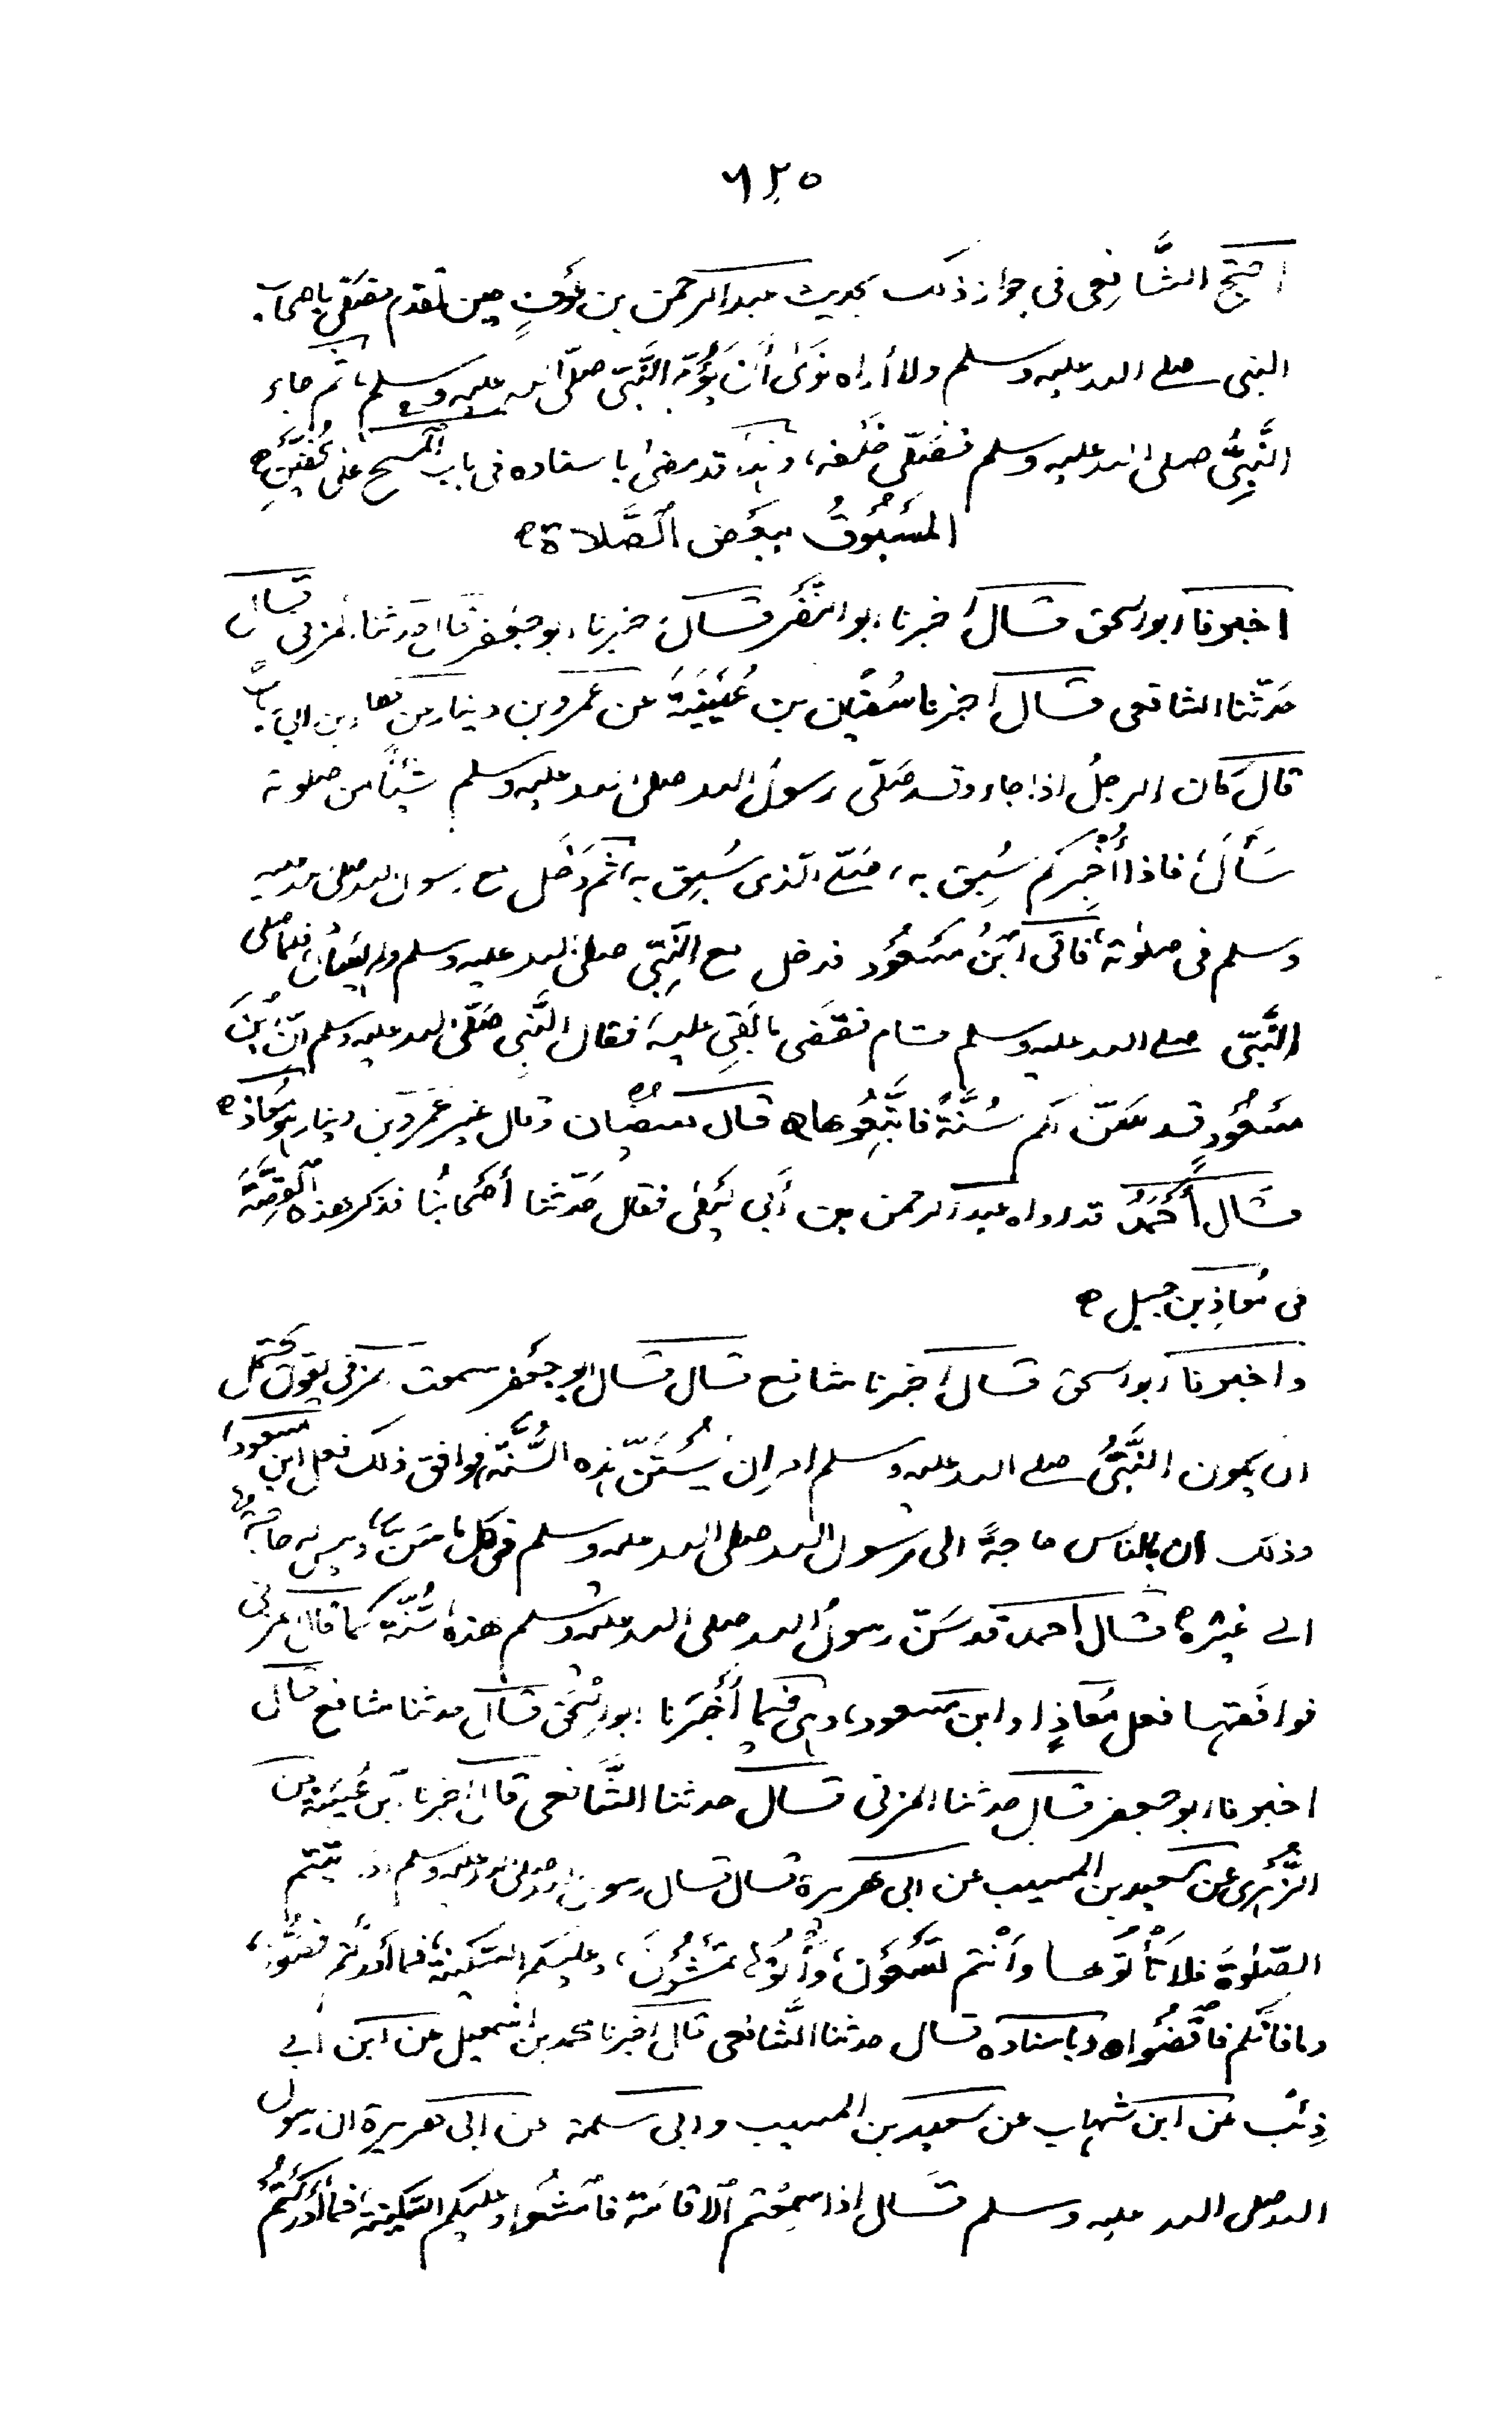 ٦٢٥
احتج الشَّافِعِى فى جواز ذلك بحديث عبد الرحمن بن عَوفٍ حين تقدم فصَلّى باصحاب
النبى صلى الله عليه وسلم ولا أراه نَوَى أَن يَؤُمّه النَّبىّ صلّى الله عليه وسلم، ثم جاء
النَّبِىُّ صلى الله عليه وسلم فصَلّى خَلْفه، وهذا قد مضى باسناده فى باب المسح على الخُفَّيْنِ ٥
المَسْبُوقُ ببَعْضِ الصَّلاة ٥
اخبرنا ابو اسحق قال اخبرنا ابو النَّضْر قال اخبرنا ابو جَعْفر قال حدثنا المزنى قال
حَدّثنا الشافعى قال اخبرنا سُفْيٰن بن عُيَيْنَةَ عن عَمرو بن دينار عن عطاء بن ابى رباح
قال كان الرجلُ اذا جاء وقد صَلّى رسولُ الله صلى الله عليه وسلم شيئًا من صلوته
سَأَلَ، فاذا أُخْبِركم سُبِق به، صَلّى الّذى سُبِق به، ثم دَخَل مع رسول الله صلى الله عليه
وسلم فى صلوٰته، فأتى ابْنُ مَسْعُود فدخل مع النَّبِىّ صلى الله عليه وسلم ولم يسَلْ، فلما صلى
النَّبّى صلى الله عليه وسلم قام فقَضَى ما بَقِىَ عليه، فقال النَّبى صَلَّى الله عليه وسلم انّ ابْنَ
مَسْعُودٍ قد سَنّ لكم سُنَّةً فاتَّبِعُوها ٥ قال سفيان وقال غير عَمْرو بن دينار هو مُعَاذ ٥
قال أَحْمَدُ قد رواه عبد الرحمن بن أَبى لَيْلى فقال حَدّثنا أصْحَابُنا فذكر هذه القِصَّةَ
فى مُعَاذِ بن جبل ٥
واخبرنا ابو اسحق قال اخبرنا شافع قال قال ابو جَعْفر سمعت المزنى يقول يحْتَمل
ان يكون النَّبىُّ صلى الله عليه وسلم امر ان يُسْتَنّ هذه السُّنَّة، فوافق ذلك فعل ابن مسعود،
وذلك ان بالناس حاجةً الى رسول الله صلى الله عليه وسلم فى كل ما سَنّ، وليس به حاجةٌ
الى غيْره ٥ قال احمد قد سَنّ رسولُ الله صلى الله عليه وسلم هذه سُنّة كما قال المزنى
فوافَقَها فعل مُعَاذٍ او ابن مسعود، وهى فيما أَخْبَرنا ابو اسْحٰق قال حدثنا شافع قال
اخبرنا ابو جعفر قال حدثنا المزنى قال حدثنا الشَّافعى قال اخبرنا ابن عُيَيْنة عن
الزُّهْرى عن سعيد بن المسيب عن ابى هريرة قال قال رسول الله صلى الله عليه وسلم اذا أتيتم
الصّلٰوةَ فلا تأْتوها وأنْتم تَسْعَوْن، وأْتُوْها تَمْشُوْنَ، وعليكم السّكينة، فما أدركتم فصَلُّوا،
وما فاتَكم فاقْضُوا ٥ وباسناده قال حدثنا الشَّافعى قال اخبرنا محمد بن اسْمٰعيل عن ابن ابى
ذِئب عن ابن شهاب عن سعيد بن المسيب وابى سلمة عن ابى هريرة ان رسول
الله صلى الله عليه وسلم قال اذا سمِعْتم الاقامَة فامْشُوا وعليكم السّكينة، فما أَدْرَكْتُمْ